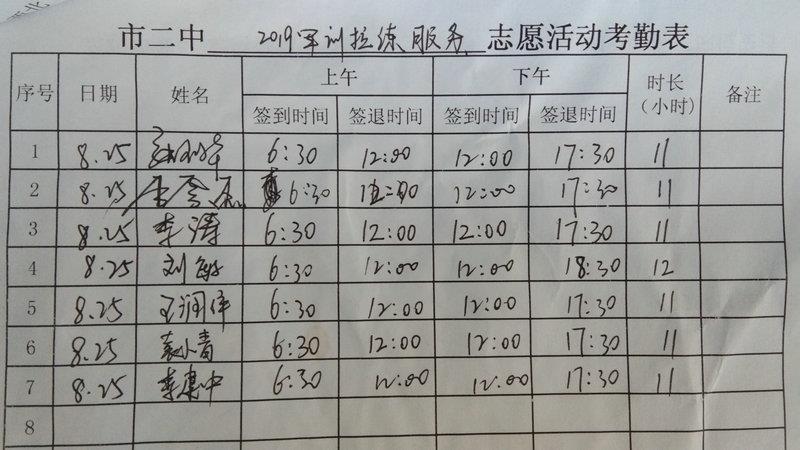 市二中 2019军训拉练服务 志愿活动考勤表
序号 日期 姓名 上午 下午 时长（小时） 备注
签到时间 签退时间 签到时间 签退时间
1 8.25 6:30 12:00 12:00 17:30 11
2 8.25 6:30 12:00 12:00 17:30 11
3 8.25 李涛 6:30 12:00 12:00 17:30 11
4 8.25 刘敏 6:30 12:00 12:00 18:30 12
5 8.25 王润伟 6:30 12:00 12:00 17:30 11
6 8.25 袁小青 6:30 12:00 12:00 17:30 11
7 8.25 李建中 6:30 12:00 12:00 17:30 11
8